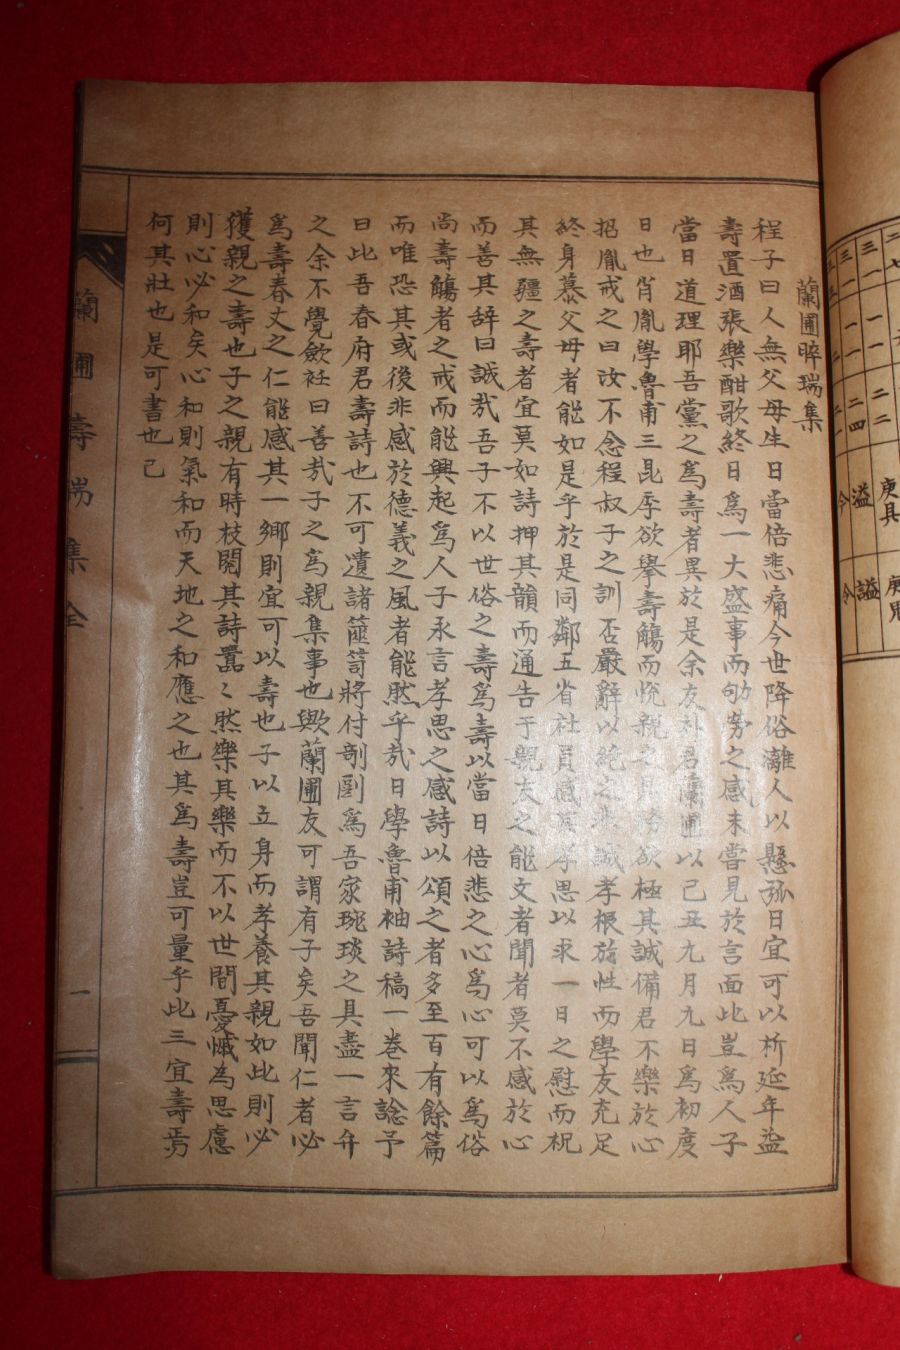 蘭圃晬瑞集
程子曰人無父母生日當倍悲痛今世降俗漓人以懸弧日宜可以祈延年益
壽置酒張樂酣歌終日爲一大盛事而劬勞之感未嘗見於言面此豈爲人子
當日道理耶吾黨之爲壽者異於是余友朴君蘭圃以己丑九月九日爲初度
日也肖胤學魯甫三昆季欲擧壽觴而悅親之具將欲極其誠備君不樂於心
招胤戒之曰汝不念程叔子之訓否嚴辭以絶之誠孝根於性而學友充足
終身慕父母者能如是乎於是同鄰五省社員感其孝思以求一日之慰而祝
其無疆之壽者宜莫如詩押其韻而通告于親友之能文者聞者莫不感於心
而善其辞曰誠哉吾子不以世俗之壽爲壽以當日倍悲之心爲心可以爲俗
尚壽觴者之戒而能興起爲人子永言孝思之感詩以頌之者多至百有餘篇
而唯恐其或後非感於德義之風者能然乎哉日學魯甫袖詩稿一巻來諗予
曰此吾春府君壽詩也不可遺諸篋笥將付剞劂爲吾家琬琰之具盍一言弁
之余不覺斂衽曰善哉子之爲親集事也歟蘭圃友可謂有子矣吾聞仁者必
爲壽春丈之仁能感其一鄉則宜可以壽也子以立身而孝養其親如此則必
獲親之壽也子之親有時枝閱其詩囂〻然樂其樂而不以世間憂慽為思慮
則心必和矣心和則氣和而天地之和應之也其爲壽豈可量乎此三宜壽焉
何其壯也是可書也已
蘭圃壽瑞集全
一
庚具
溢 謚